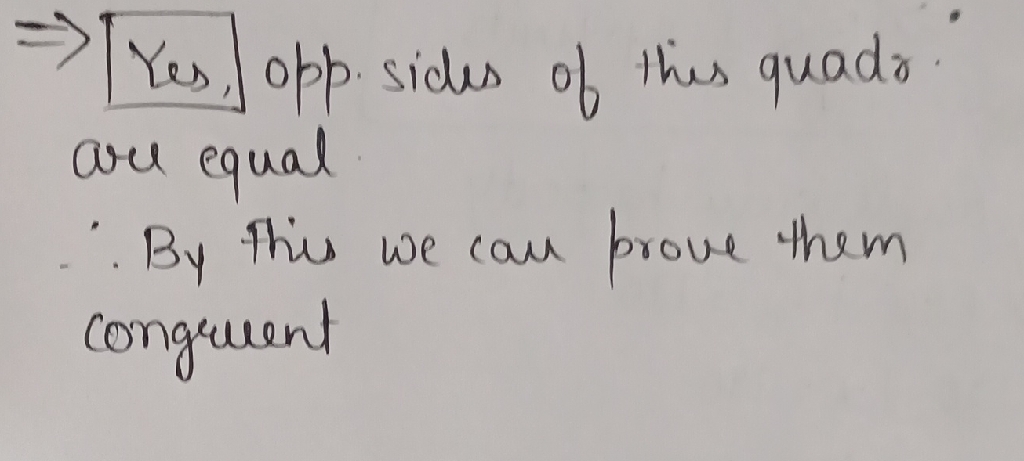 ⇒ Yes, opp. sides of this quadr.
are equal.
∴ By this we can prove them
congruent